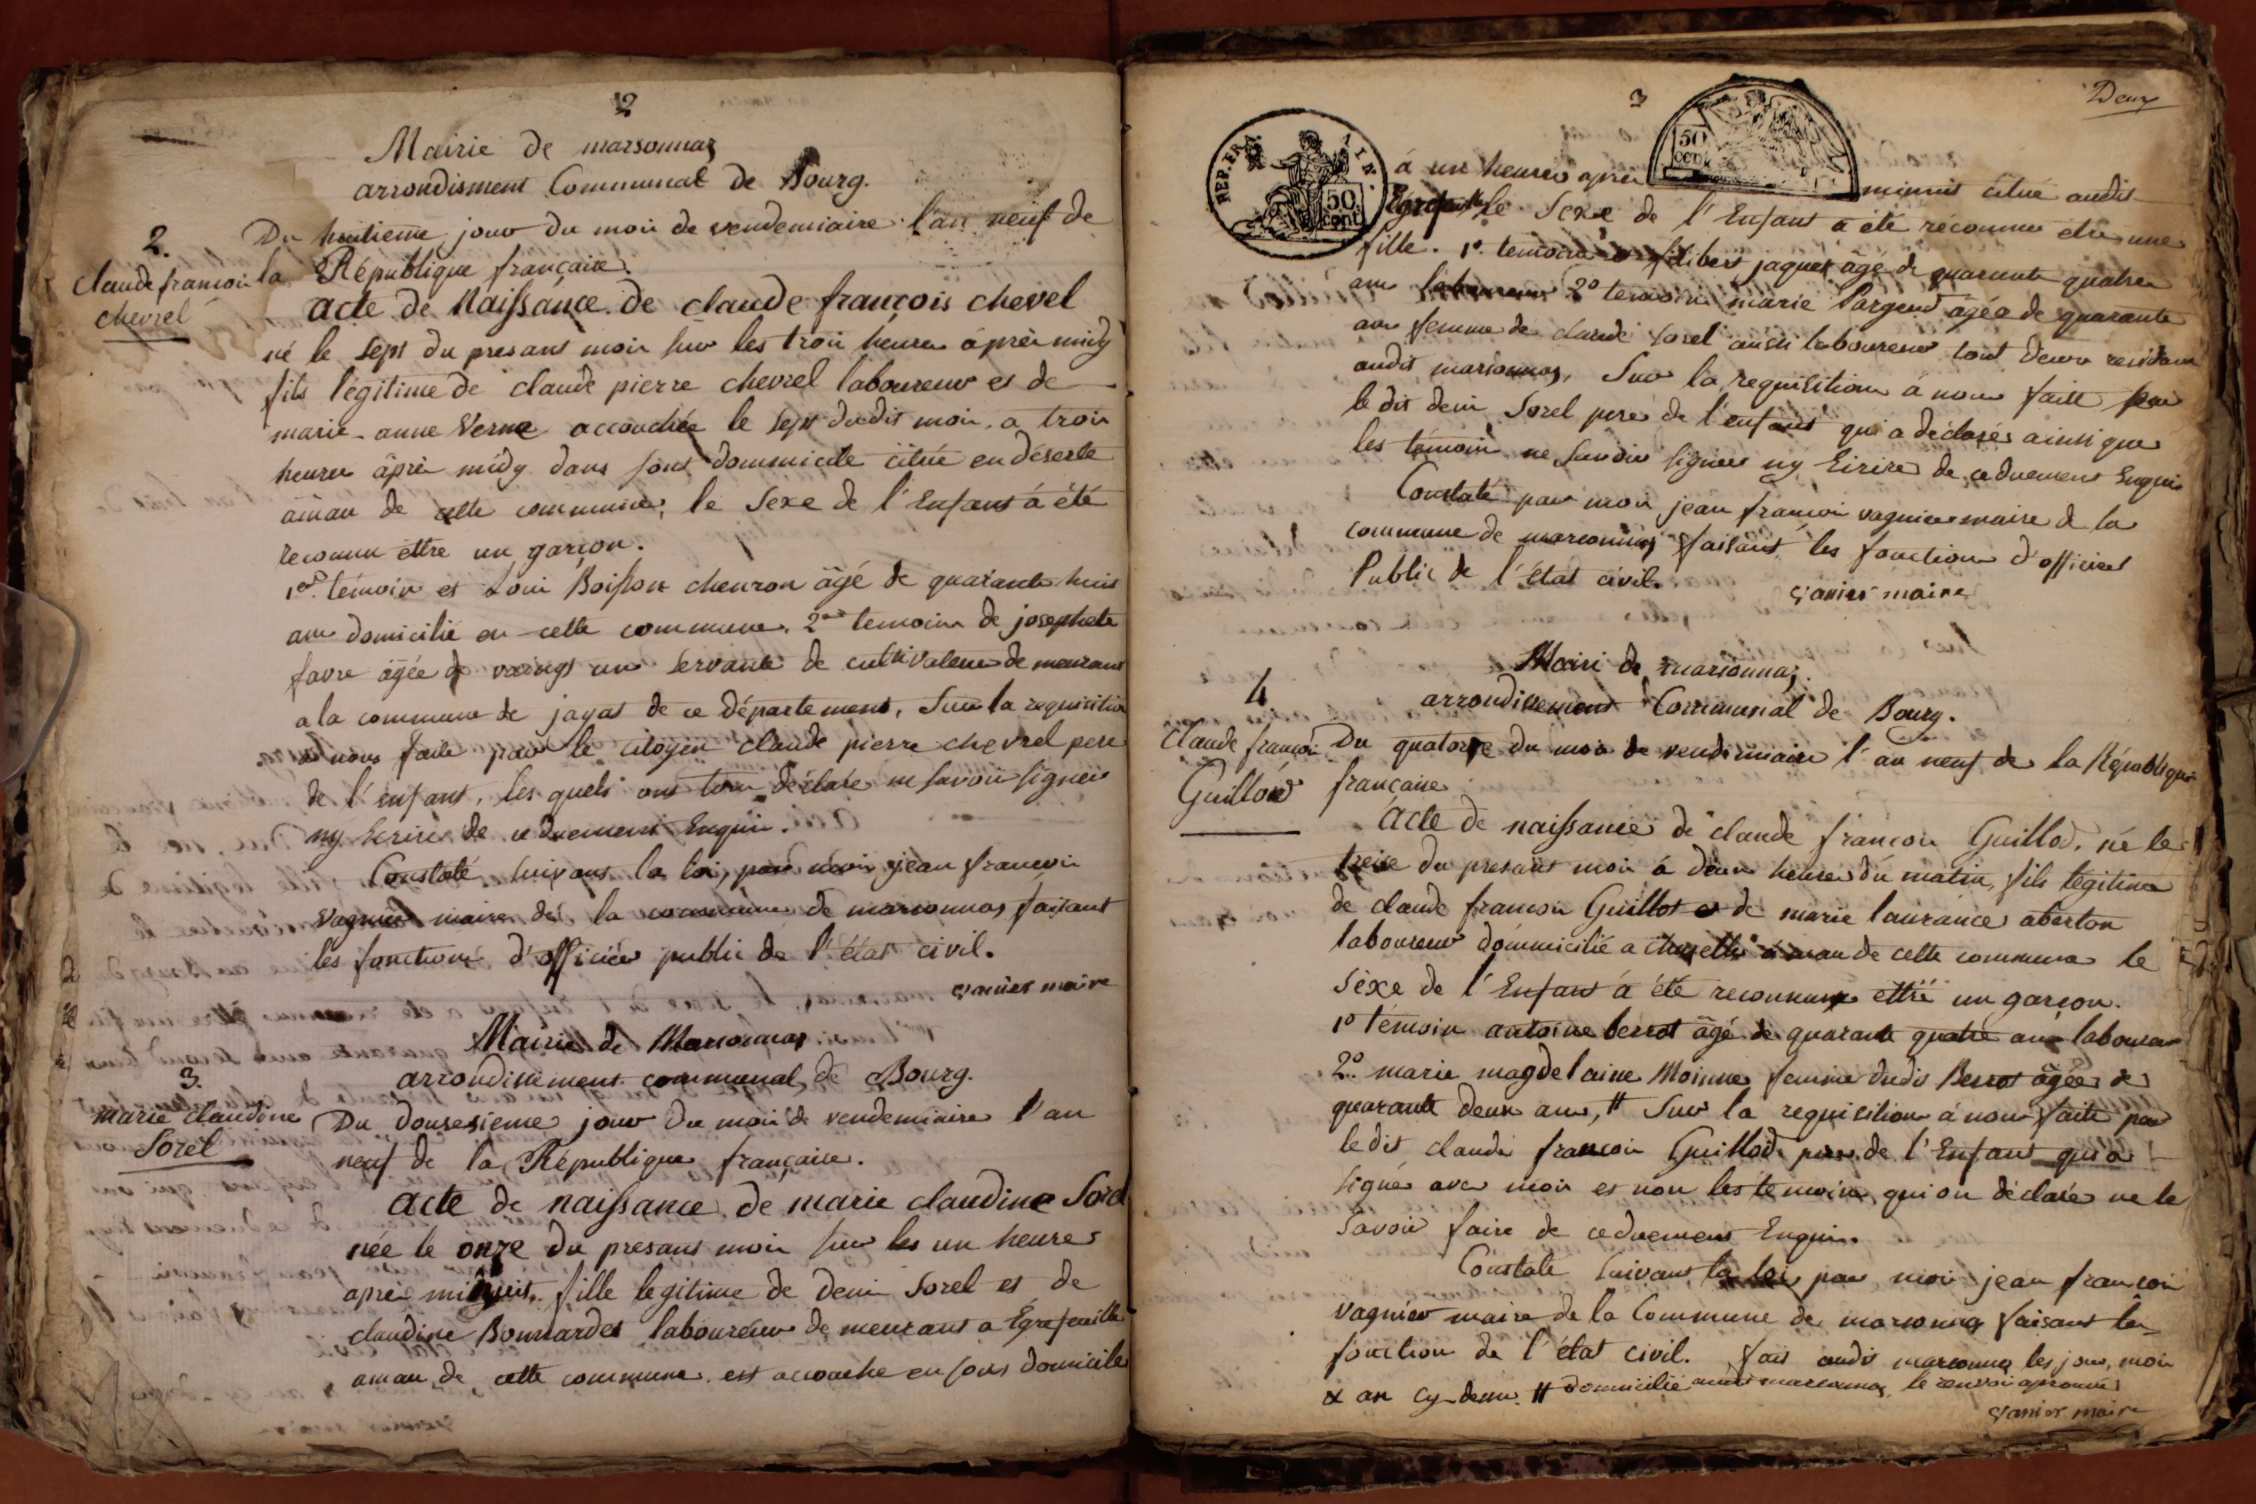 2
Mairie de marsonnas
arrondisment Communal de Bourg.
2.
Claude francoi
chevrel
Du huitieme jour du moi de vendemiaire l'an neuf de
la République françaíse.
acte de Naissance de claude françois chevel
né le sept du presant moi sur les troi heure áprèi midy
fils légitime de claude pierre chevrel laboureur et de
marie-anne Verne accouchée le sept dudit moi, a troi
heure âprèi midy dans sont dommicile citué en déserte
áman de cette commune, le Sexe de l'Enfant á été
reconnu ettre un garçon.
1er. témoin et Loui Boisson cheuron âgé de quarante huit
ans domicilié en cette commune. 2me temoin de josephete
favre âgée de vaingt un servante de cultivateur de meurant
a la commune de jayat de ce département, Sur la requisition
a nous faite par le citoyen claude pierre chevrel pere
de l'enfant, les quels ont tou déclaré ne savoir signer
ny Ecrire de ce duement Enqui.
Constaté suivant la loi, par moi jean francoi
vagnier maire de la commune de marsonnas faisant
les fonctions d'officier public de l'état civil.
vanier maire
Mairie de Marsonnas
arrondisement communal de Bourg.
3.
marie claudine
Sorel
Du dousesieme jour du moi de vendemiaire l'an
neuf de la République françaíse.
acte de naissance de marie claudine Sorel
née le onze du presant moi sur les un heure
áprèi minuit, fille legitime de deni Sorel et de
claudine Bonnardet laboureur de meurant a Egrefeuille
aman de cette commune est accouche en sont domicile
3
Deux
REP. FRA.
AIN.
50 cent
50 cent
á un heure áprèi minuit citué audit
Egrefeuille le Sexe de l'Enfant a été reconnu etre une
fille. 1o. temoin filibert jaquet âgé de quarante quatre
ans laboureur 2o temoin marie Pargeud âgée de quarante
ans femme de claude Sorel aussi laboureur tout deux residant
audit marsonnas, Sur la requisition á nous faite par
le dit deni Sorel pere de l'enfant qui a déclaré ainsi que
les témoin ne savoir signer ny Ecrire de ce duement Enqui
Constaté par moi jean francoi vagnier maire de la
commune de marsonnas faisant les fonction d'officier
Public de l'état civil.
vanier maire
Mairi de marsonnas.
arrondisement Communal de Bourg.
4
Claude francoi
Guillod
Du quatorze du moi de vendemiaire l'an neuf de la République
françaíse
Acte de naissance de claude francoi Guillod, né le
treize du presant moi á deux heure du matin, fils légitime
de claude francoi Guillot et de marie laurance aberton
laboureur dommicilié a áman de cette commune le
Sexe de l'Enfant á été reconnu ettre un garçon.
1o témoin antoine berrot âgé de quarante quatre ans laboureur
2o. marie magdelaine Moinne femme dudit Berrot âgée de
quarante deux ans, # Sur la requisition á nous faite par
le dit claude francoi Guillod pere de l'Enfant qui a
signé avec moi et non les témoin qui on déclaré ne le
Savoir faire de ce duement Enqui.
Constaté suivant la loi par moi jean francoi
vagnier maire de la Commune de marsonnas faisant les
fonction de l'état civil. fait audit marsonnas les jour, moi
& an cy-denu. # domicilié audit marsonnas le renvoi aprouvé
vanier maire